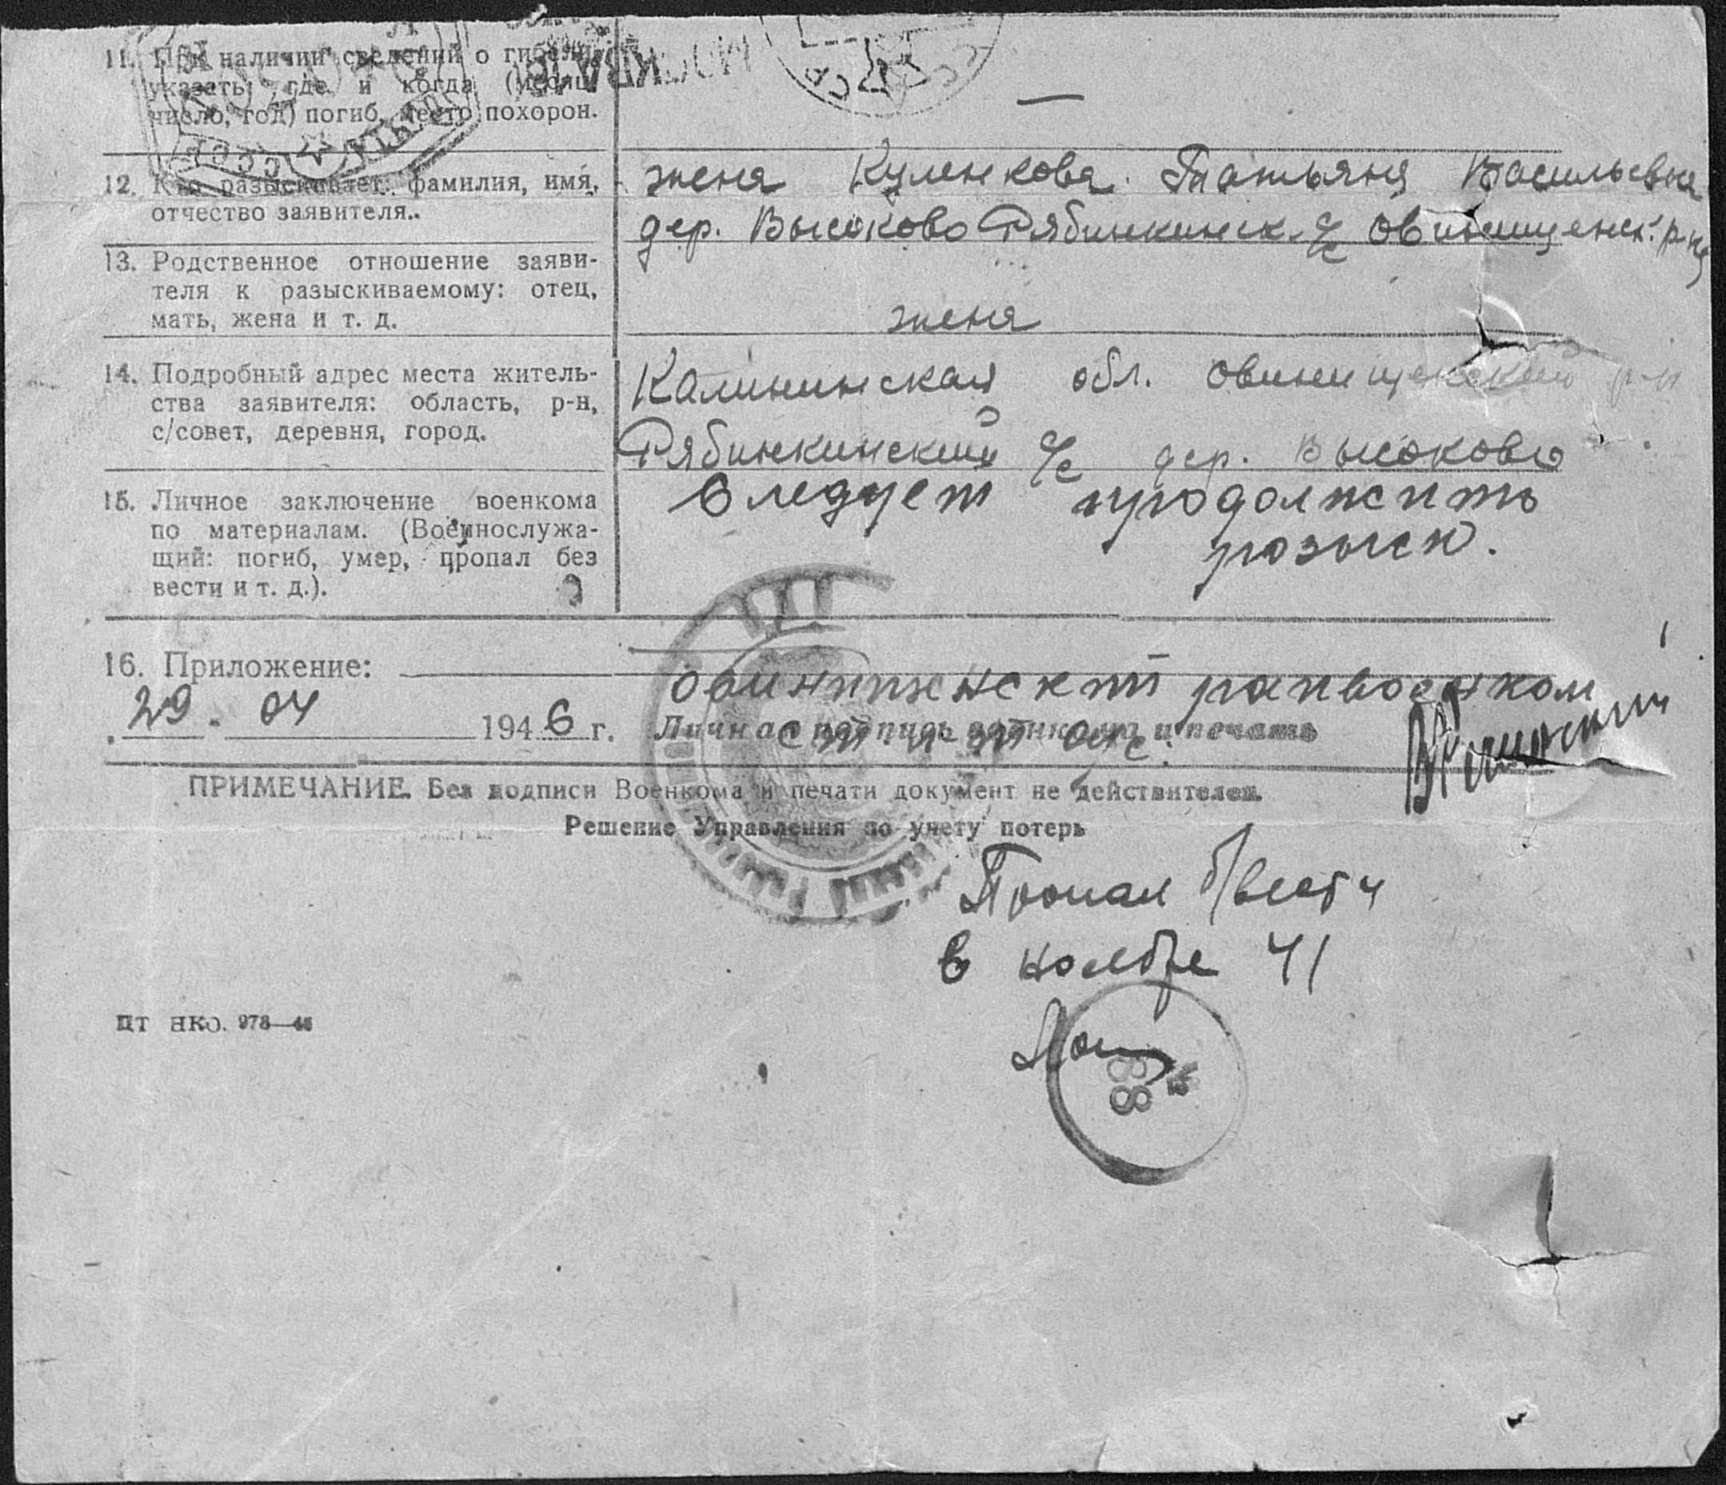 11. При наличии сведений о гибели,
указать, где и когда (месяц,
число, год) погиб, место похорон.
—
12. Кто разыскивает: фамилия, имя,
отчество заявителя.
жена Куленкова Татьяна Васильевна
дер. Высоково Рябинкинск. с/с Овинищенск. р-на
13. Родственное отношение заяви-
теля к разыскиваемому: отец,
мать, жена и т. д.
жена
14. Подробный адрес места житель-
ства заявителя: область, р-н,
с/совет, деревня, город.
Калининская обл. Овинищенский р-н
Рябинкинский с/с дер. Высоково
15. Личное заключение военкома
по материалам. (Военнослужа-
щий: погиб, умер, пропал без
вести и т. д.).
Следует продолжить
розыск.
16. Приложение:
Овинищенский райвоенком
29. 04 1946 г. Личная подпись военкома и печать
ПРИМЕЧАНИЕ. Без подписи Военкома и печати документ не действителен.
Решение Управления по учету потерь
Пропал б/вести
в ноябре 41
88
ЦТ НКО. 978—46